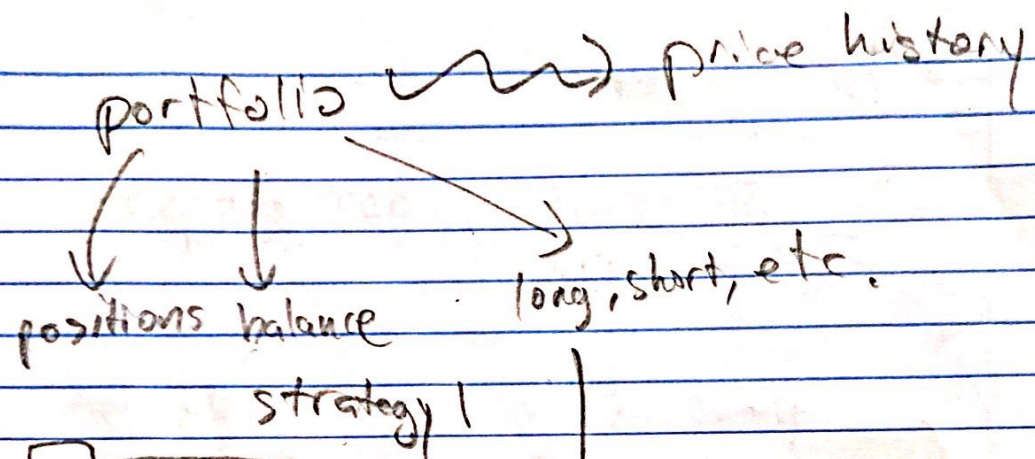 portfolio price history
positions balance long, short, etc.
strategy 1